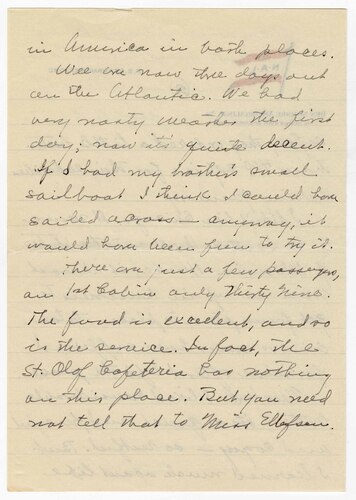 in America in both places.
Wee are now three days out
on the Atlantic. We had
very nasty weather the first
day; now it's quite decent.
If I had my brother's small
sailboat I think I could have
sailed across – anyway, it
would have been fun to try it.
There are just a few passengers,
on 1st Cabin only Thirty Nine.
The food is excellent, and so
is the service. In fact, the
St. Olaf Cafeteria has nothing
on this place. But you need
not tell that to Miss Ellefsen.